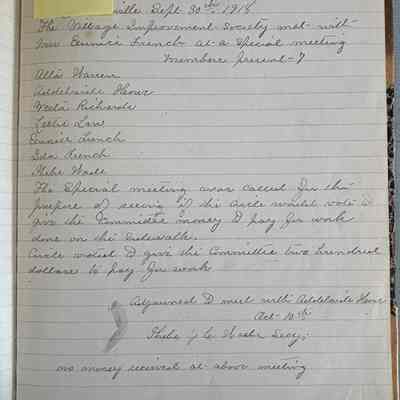 ville Sept 30th 1918
The Village Improvement Society met with
Mrs Eunice French at a Special meeting
Members present - 7
Alta Warren
Addelaide Howe
Neda Richards
Lettie Law
Eunice French
Ida French
Phebe Wade
The Special meeting was called for the
purpose of seeing if the Circle would vote to
give the Committee money to pay for work
done on the Sidewalk.
Circle voted to give the Committee two hundred
dollars to pay for work
Adjourned to meet with Addelaide Howe
Oct - 10th
Phebe Secy;
no money received at above meeting